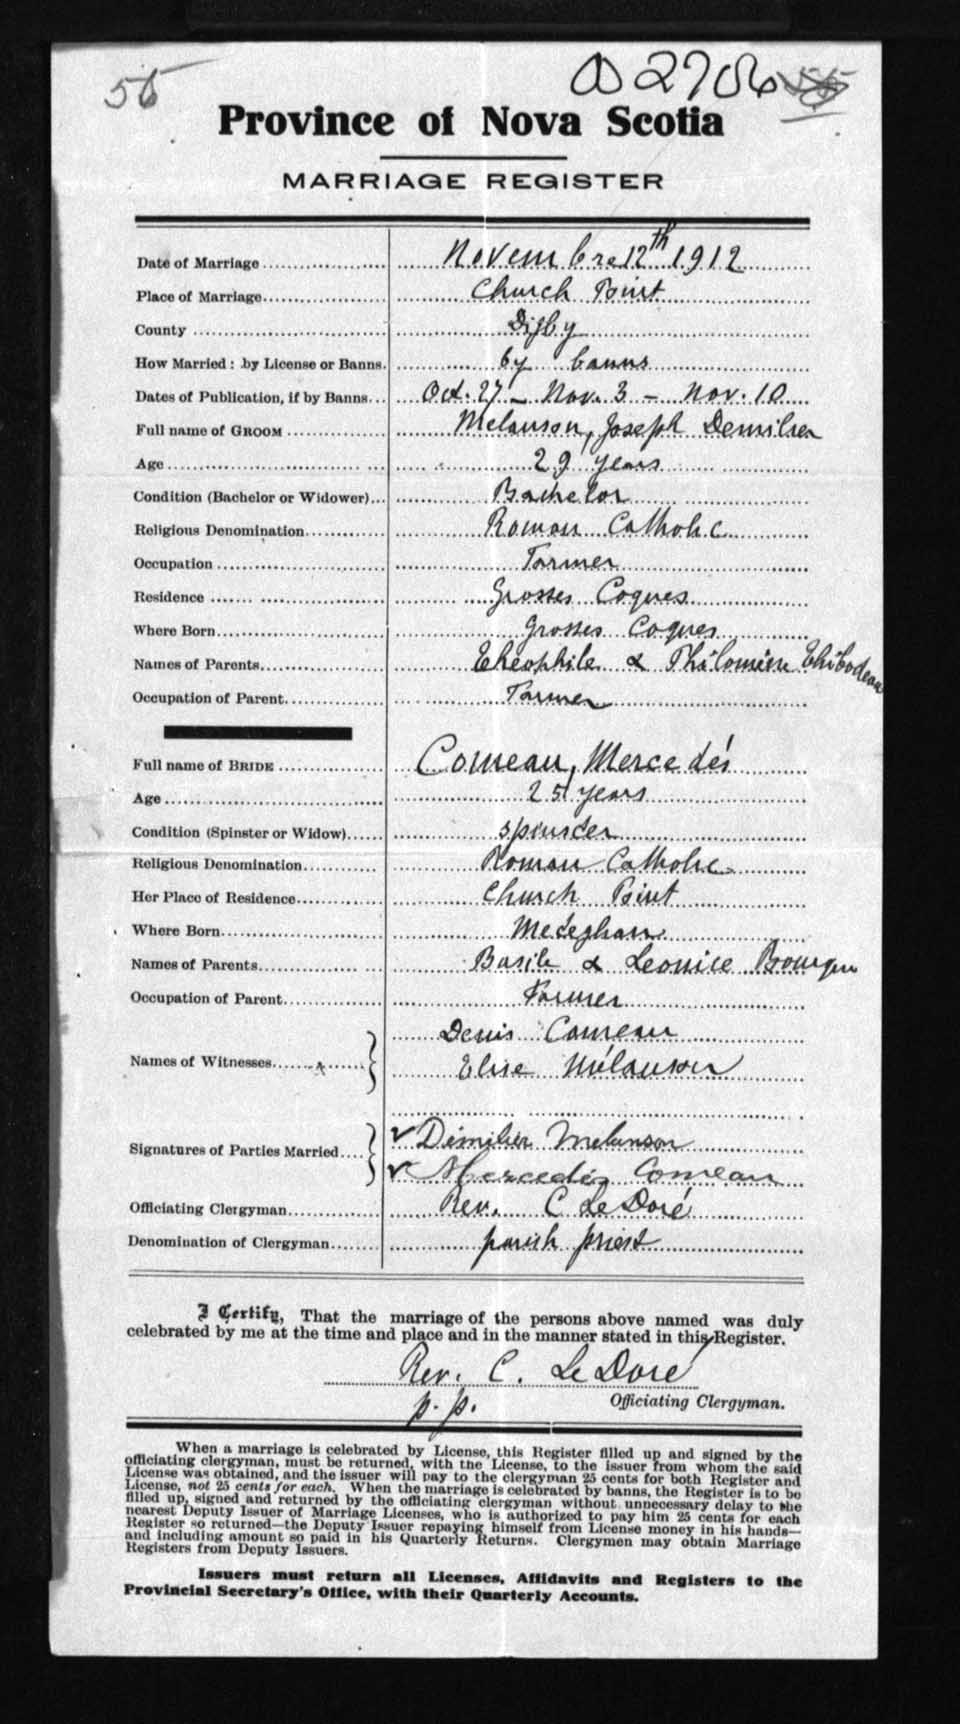 56
002706
Province of Nova Scotia
MARRIAGE REGISTER
Date of Marriage Novembre 12th 1912
Place of Marriage Church Point
County Digby
How Married: by License or Banns. by banns
Dates of Publication, if by Banns Oct. 27 – Nov. 3 – Nov. 10
Full name of GROOM Melanson, Joseph
Age 29 years
Condition (Bachelor or Widower) Bachelor
Religious Denomination Roman Catholic
Occupation Farmer
Residence Grosses Coques
Where Born Grosses Coques
Names of Parents Theophile & Philomène Thibodeau
Occupation of Parent Farmer
Full name of BRIDE Comeau, Mercedés
Age 25 years
Condition (Spinster or Widow) spinster
Religious Denomination Roman Catholic
Her Place of Residence Church Point
Where Born Meteghan
Names of Parents Basile & Leonice
Occupation of Parent Farmer
Denis Comeau
Names of Witnesses Elise Mélanson
Melanson
Signatures of Parties Married
Mercedés Comeau
Officiating Clergyman Rev. C LeDoré
Denomination of Clergyman parish priest
I Certify, That the marriage of the persons above named was duly
celebrated by me at the time and place and in the manner stated in this Register.
Rev. C. LeDoré
p. p. Officiating Clergyman.
When a marriage is celebrated by License, this Register filled up and signed by the
officiating clergyman, must be returned, with the License, to the issuer from whom the said
License was obtained, and the issuer will pay to the clergyman 25 cents for both Register and
License, not 25 cents for each. When the marriage is celebrated by banns, the Register is to be
filled up, signed and returned by the officiating clergyman without unnecessary delay to the
nearest Deputy Issuer of Marriage Licenses, who is authorized to pay him 25 cents for each
Register so returned—the Deputy Issuer repaying himself from License money in his hands—
and including amount so paid in his Quarterly Returns. Clergymen may obtain Marriage
Registers from Deputy Issuers.
Issuers must return all Licenses, Affidavits and Registers to the
Provincial Secretary's Office, with their Quarterly Accounts.